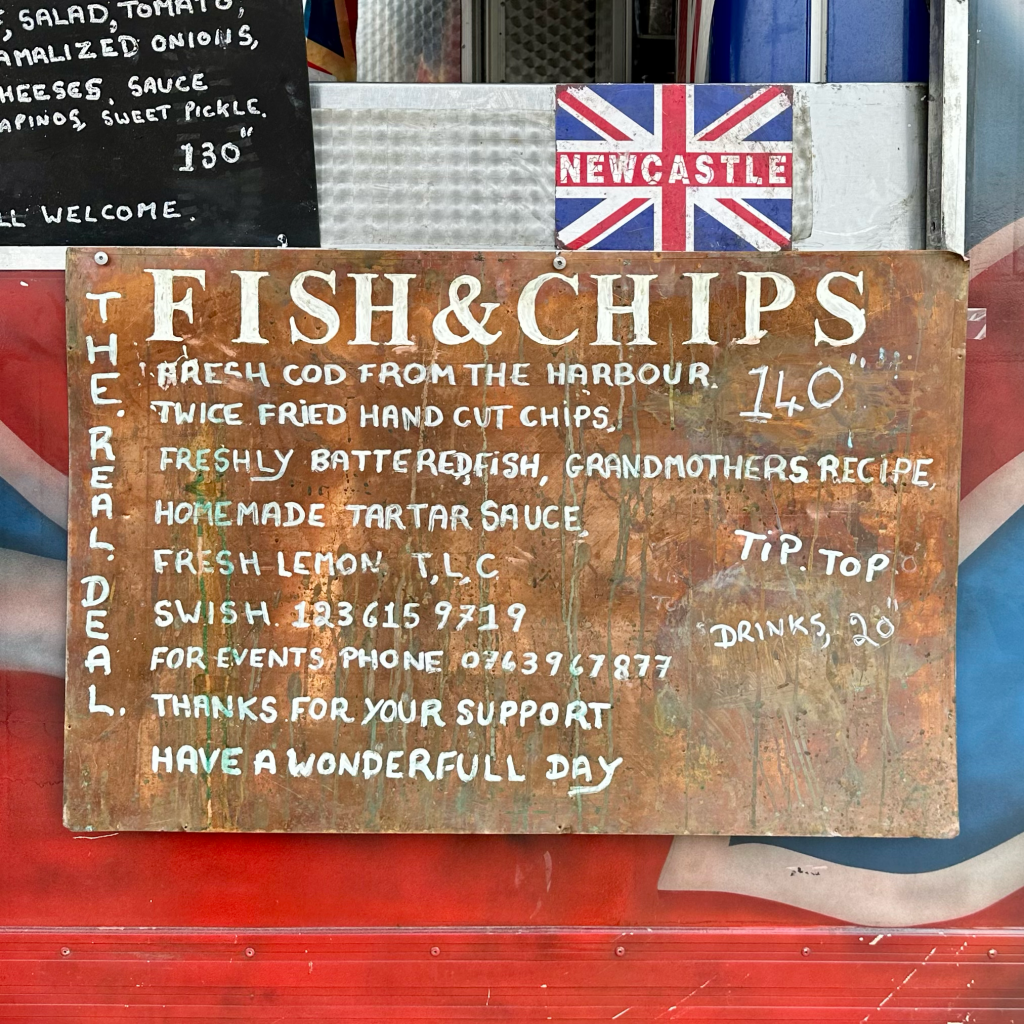 SALAD, TOMATO,
ONIONS,
SAUCE
SWEET PICKLE.
130"
WELCOME.
NEWCASTLE
FISH & CHIPS
THE. REAL. DEAL.
FRESH COD FROM THE HARBOUR. 140"
TWICE FRIED HAND CUT CHIPS,
FRESHLY BATTERED FISH, GRANDMOTHERS RECIPE,
HOMEMADE TARTAR SAUCE,
TIP. TOP.
FRESH LEMON, T,L,C
SWISH. 123 615 9719
"DRINKS, 20"
FOR EVENTS, PHONE 0763967877
THANKS FOR YOUR SUPPORT
HAVE A WONDERFULL DAY